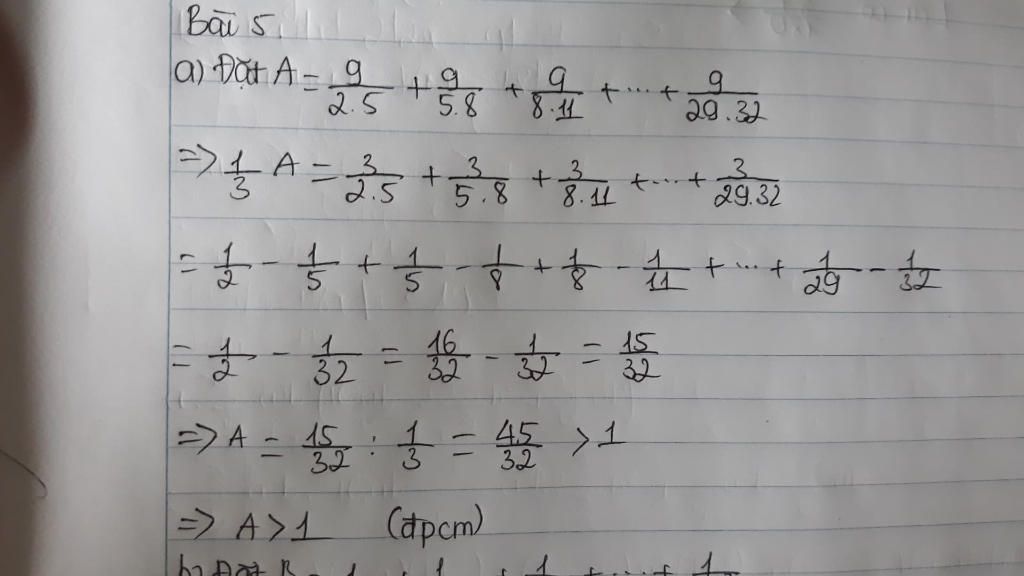 Bài 5
a) Đặt A = 9/2.5 + 9/5.8 + 9/8.11 + ... + 9/29.32
=> 1/3 A = 3/2.5 + 3/5.8 + 3/8.11 + ... + 3/29.32
= 1/2 - 1/5 + 1/5 - 1/8 + 1/8 - 1/11 + ... + 1/29 - 1/32
= 1/2 - 1/32 = 16/32 - 1/32 = 15/32
=> A = 15/32 : 1/3 = 45/32 > 1
=> A > 1 (đpcm)
b) Đặt B =